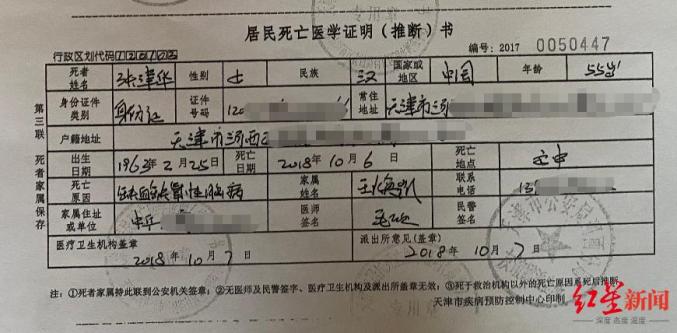 居民死亡医学证明（推断）书
行政区划代码 编号：2017 0050447
死者姓名 张津华 性别 女 民族 汉 国家或地区 中国 年龄 55岁
身份证件类别 身份证 证件号码 120 常住地址 天津市河
户籍地址 天津市河西
出生日期 1963年2月25日 死亡日期 2018年10月6日 死亡地点 家中
死亡原因 缺血缺氧性脑病 家属姓名 联系电话 13
家属住址或单位 医师签名 民警签名
医疗卫生机构盖章 派出所意见（盖章）
2018年10月7日 2018年10月7日
第三联 死者家属保存
注：①死者家属持此联到公安机关签章；②无医师及民警签字、医疗卫生机构及派出所盖章无效；③死于救治机构以外的死亡原因系死后推断。
天津市疾病预防控制中心印制
红星新闻
深度 态度 温度